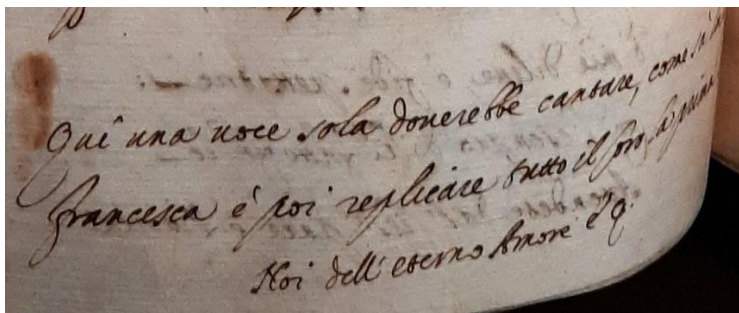 Qui una uoce sola douerebbe cantare, come sa
francesca è poi replicare tutto il
Noi dell' eterno Amore